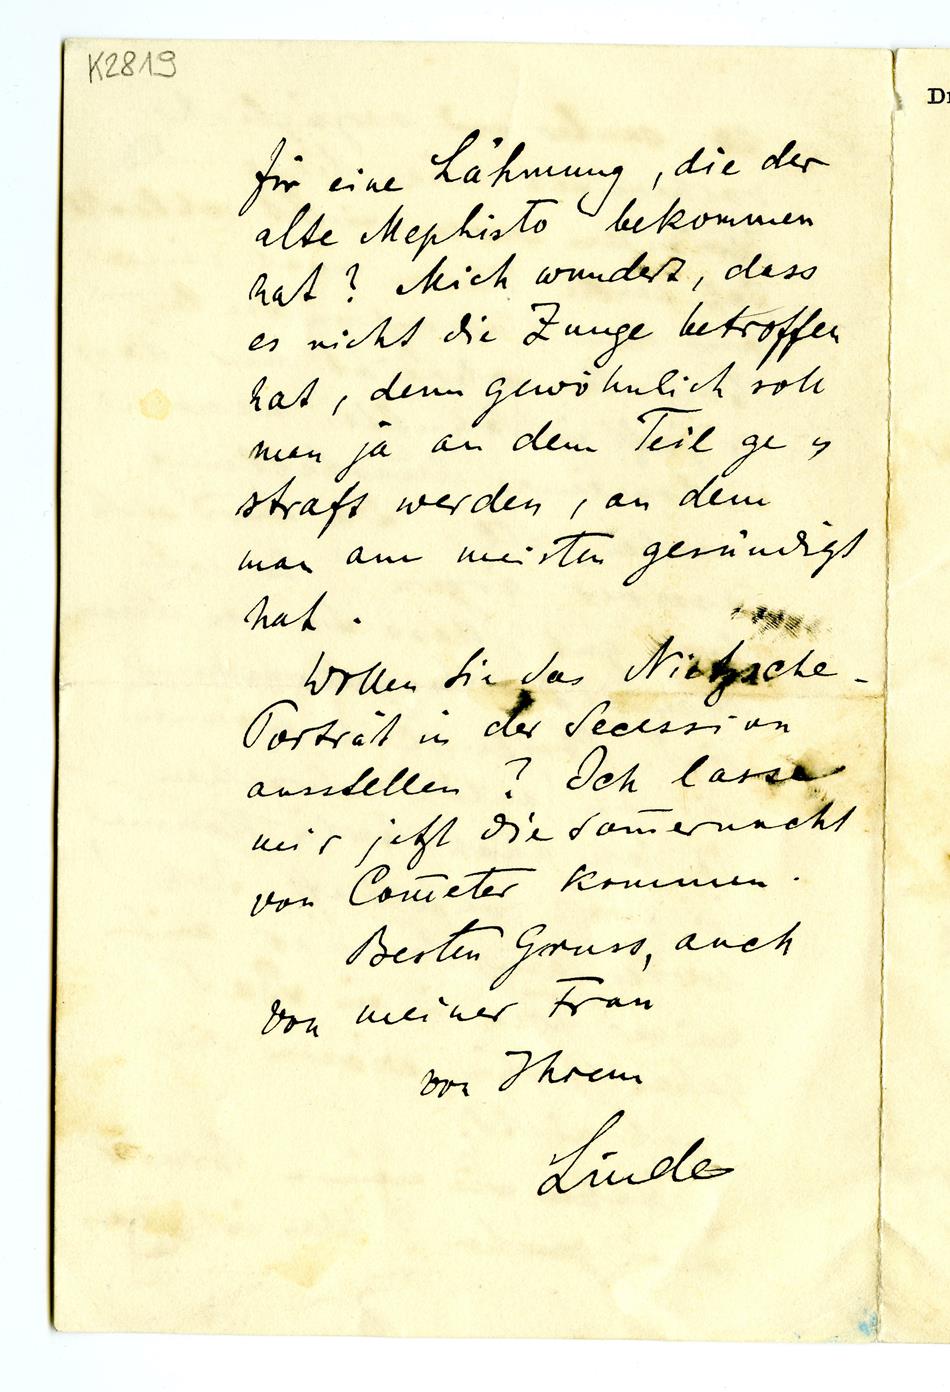 K2819
Dr
für eine Lähmung, die der
alte Mephisto bekommen
hat? Mich wundert, dass
es nicht die Zunge betroffen
hat, denn gewöhnlich soll
man ja an dem Teil ge=
straft werden, an dem
man am meisten gesündigt
hat.
Wollen Sie das Nietzsche-
Porträt in der Secession
ausstellen? Ich lasse
mir jetzt die Som̄ernacht
von Com̄eter kommen.
Besten Gruss, auch
von meiner Frau
von Ihrem
Linde